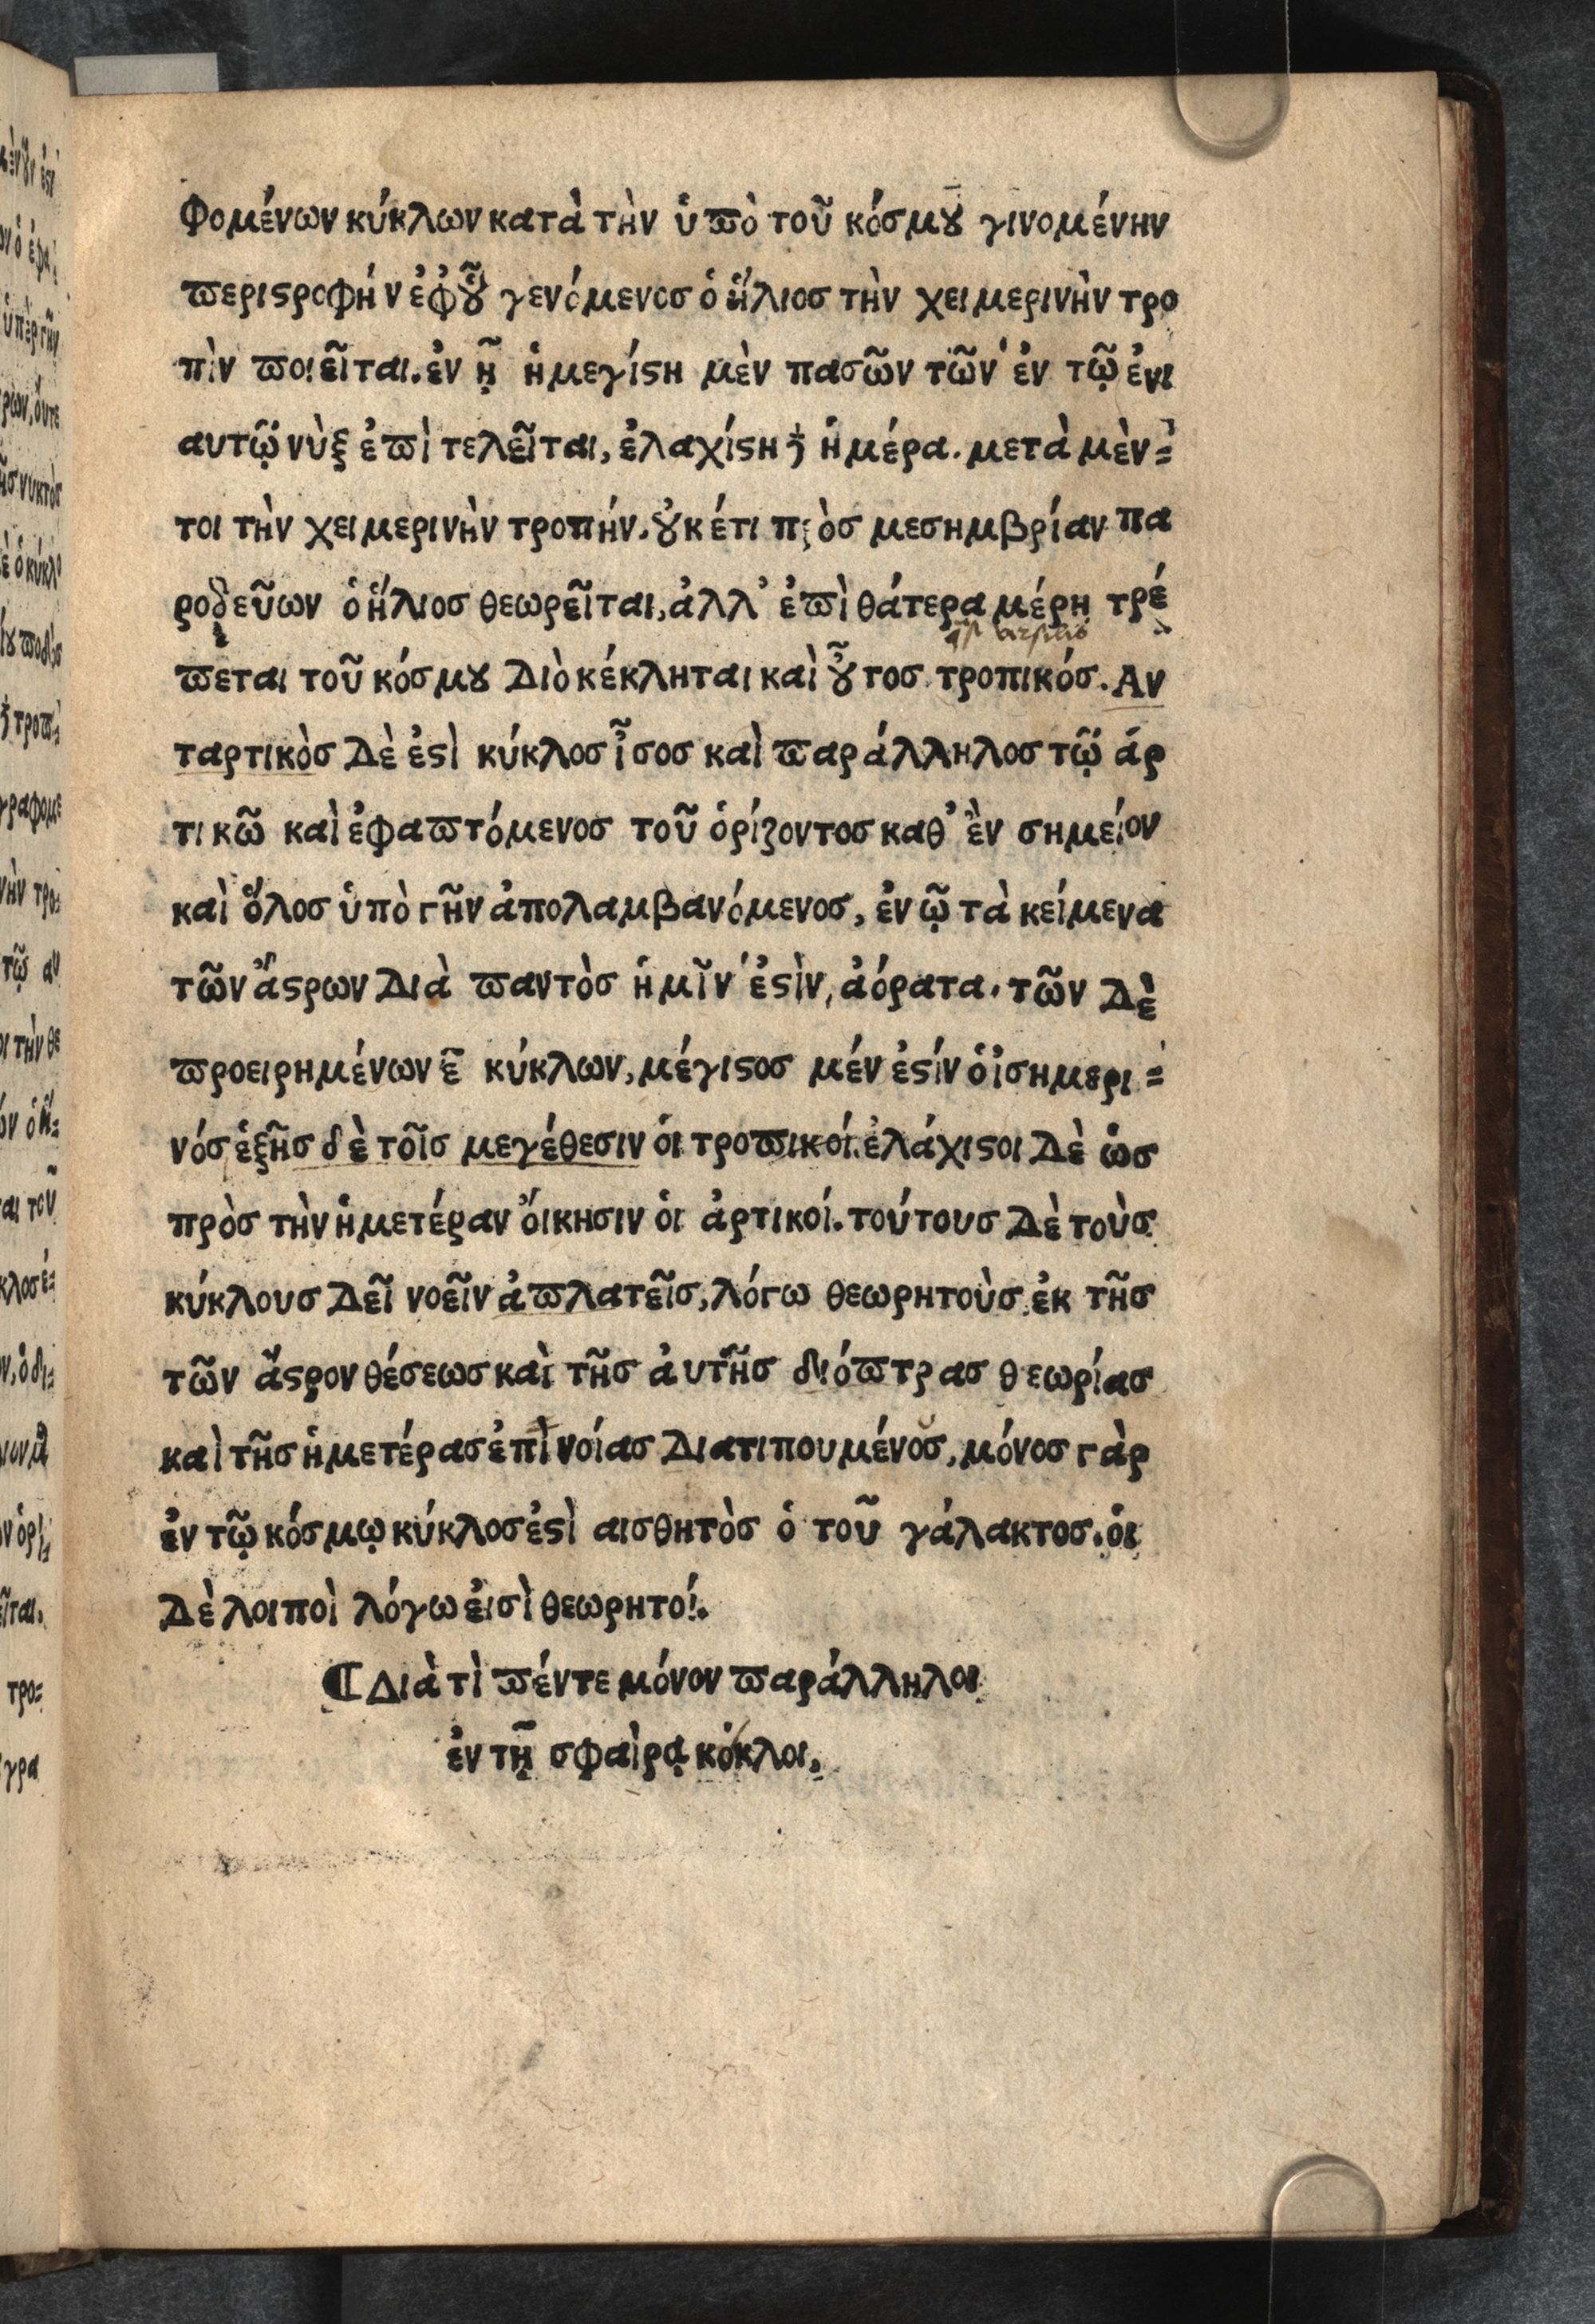 φομένων κύκλων κατὰ τὴν ὑϖὸ τοῦ κόσμȣ γινομένην
ϖεριϛροφήν ἐφ' ȣ̃ γενόμενοσ ὁ ἥλιοσ τὴν χειμερινὴν τρο
πὶν ϖοιεῖται. ἐν ᾗ ἡ μεγίϛη μὲν πασῶν τῶν ἐν τῷ ἐνι
αυτῷ νὺξ ἐϖὶ τελεῖται, ἐλαχίϛη ϟ ἡμέρα. μετὰ μὲν=
τοι τὴν χειμερινὴν τροπήν. ȣ̓κέτι πρὸσ μεσημβρίαν πα
ροδεῦων ὁ ἥλιοσ θεωρεῖται, ἀλλ' ἐϖὶ θάτερα μέρη τρέ
ϖεται τοῦ κόσμȣ Διὸ κέκληται καὶ ȣ̃τοσ τροπικόσ. Αν
ταρτικὸσ Δὲ ἐϛὶ κύκλοσ ἶσοσ καὶ ϖαράλληλοσ τῷ ἀρ
τικῶ καὶ ἐφαϖτόμενοσ τοῦ ὁρίζοντοσ καθ' ἓν σημείον
καὶ ὅλοσ ὑπὸ γῆν ἀπολαμβανόμενοσ, ἐν ᾧ τὰ κείμενα
τῶν ἄϛρων Διὰ ϖαντὸσ ἡμῖν ἐϛὶν, ἀόρατα. τῶν Δὲ
ϖροειρημένων ε̃ κύκλων, μέγιϛοσ μέν ἐϛίν ὁ ἰσημερι=
νόσ ἑξῆσ δὲ τοῖσ μεγέθεσιν ὁι τροϖικοί. ἐλάχιϛοι Δὲ ὡσ
πρὸσ τὴν ἡμετέραν ὄικησιν ὁι ἀρτικοί. τούτουσ Δὲ τοὺσ
κύκλουσ Δεῖ νοεῖν ἀϖλατεῖσ, λόγω θεωρητοὺσ, ἐκ τῆσ
τῶν ἄϛρον θέσεωσ καὶ τῆσ ἀυτῆσ διόϖτρασ θεωρίασ
καὶ τῆσ ἡμετέρασ ἐπὶ νοίασ Διατιπουμένοσ, μόνοσ γὰρ
ἐν τῷ κόσμῳ κύκλοσ ἐϛὶ αισθητὸσ ὁ τοῦ γάλακτοσ. ὁι
Δὲ λοιποὶ λόγω ἐισὶ θεωρητοί.
¶ Διὰ τὶ ϖέντε μόνον ϖαράλληλοι
ἐν τῇ σφαὶρᾳ κόκλοι,